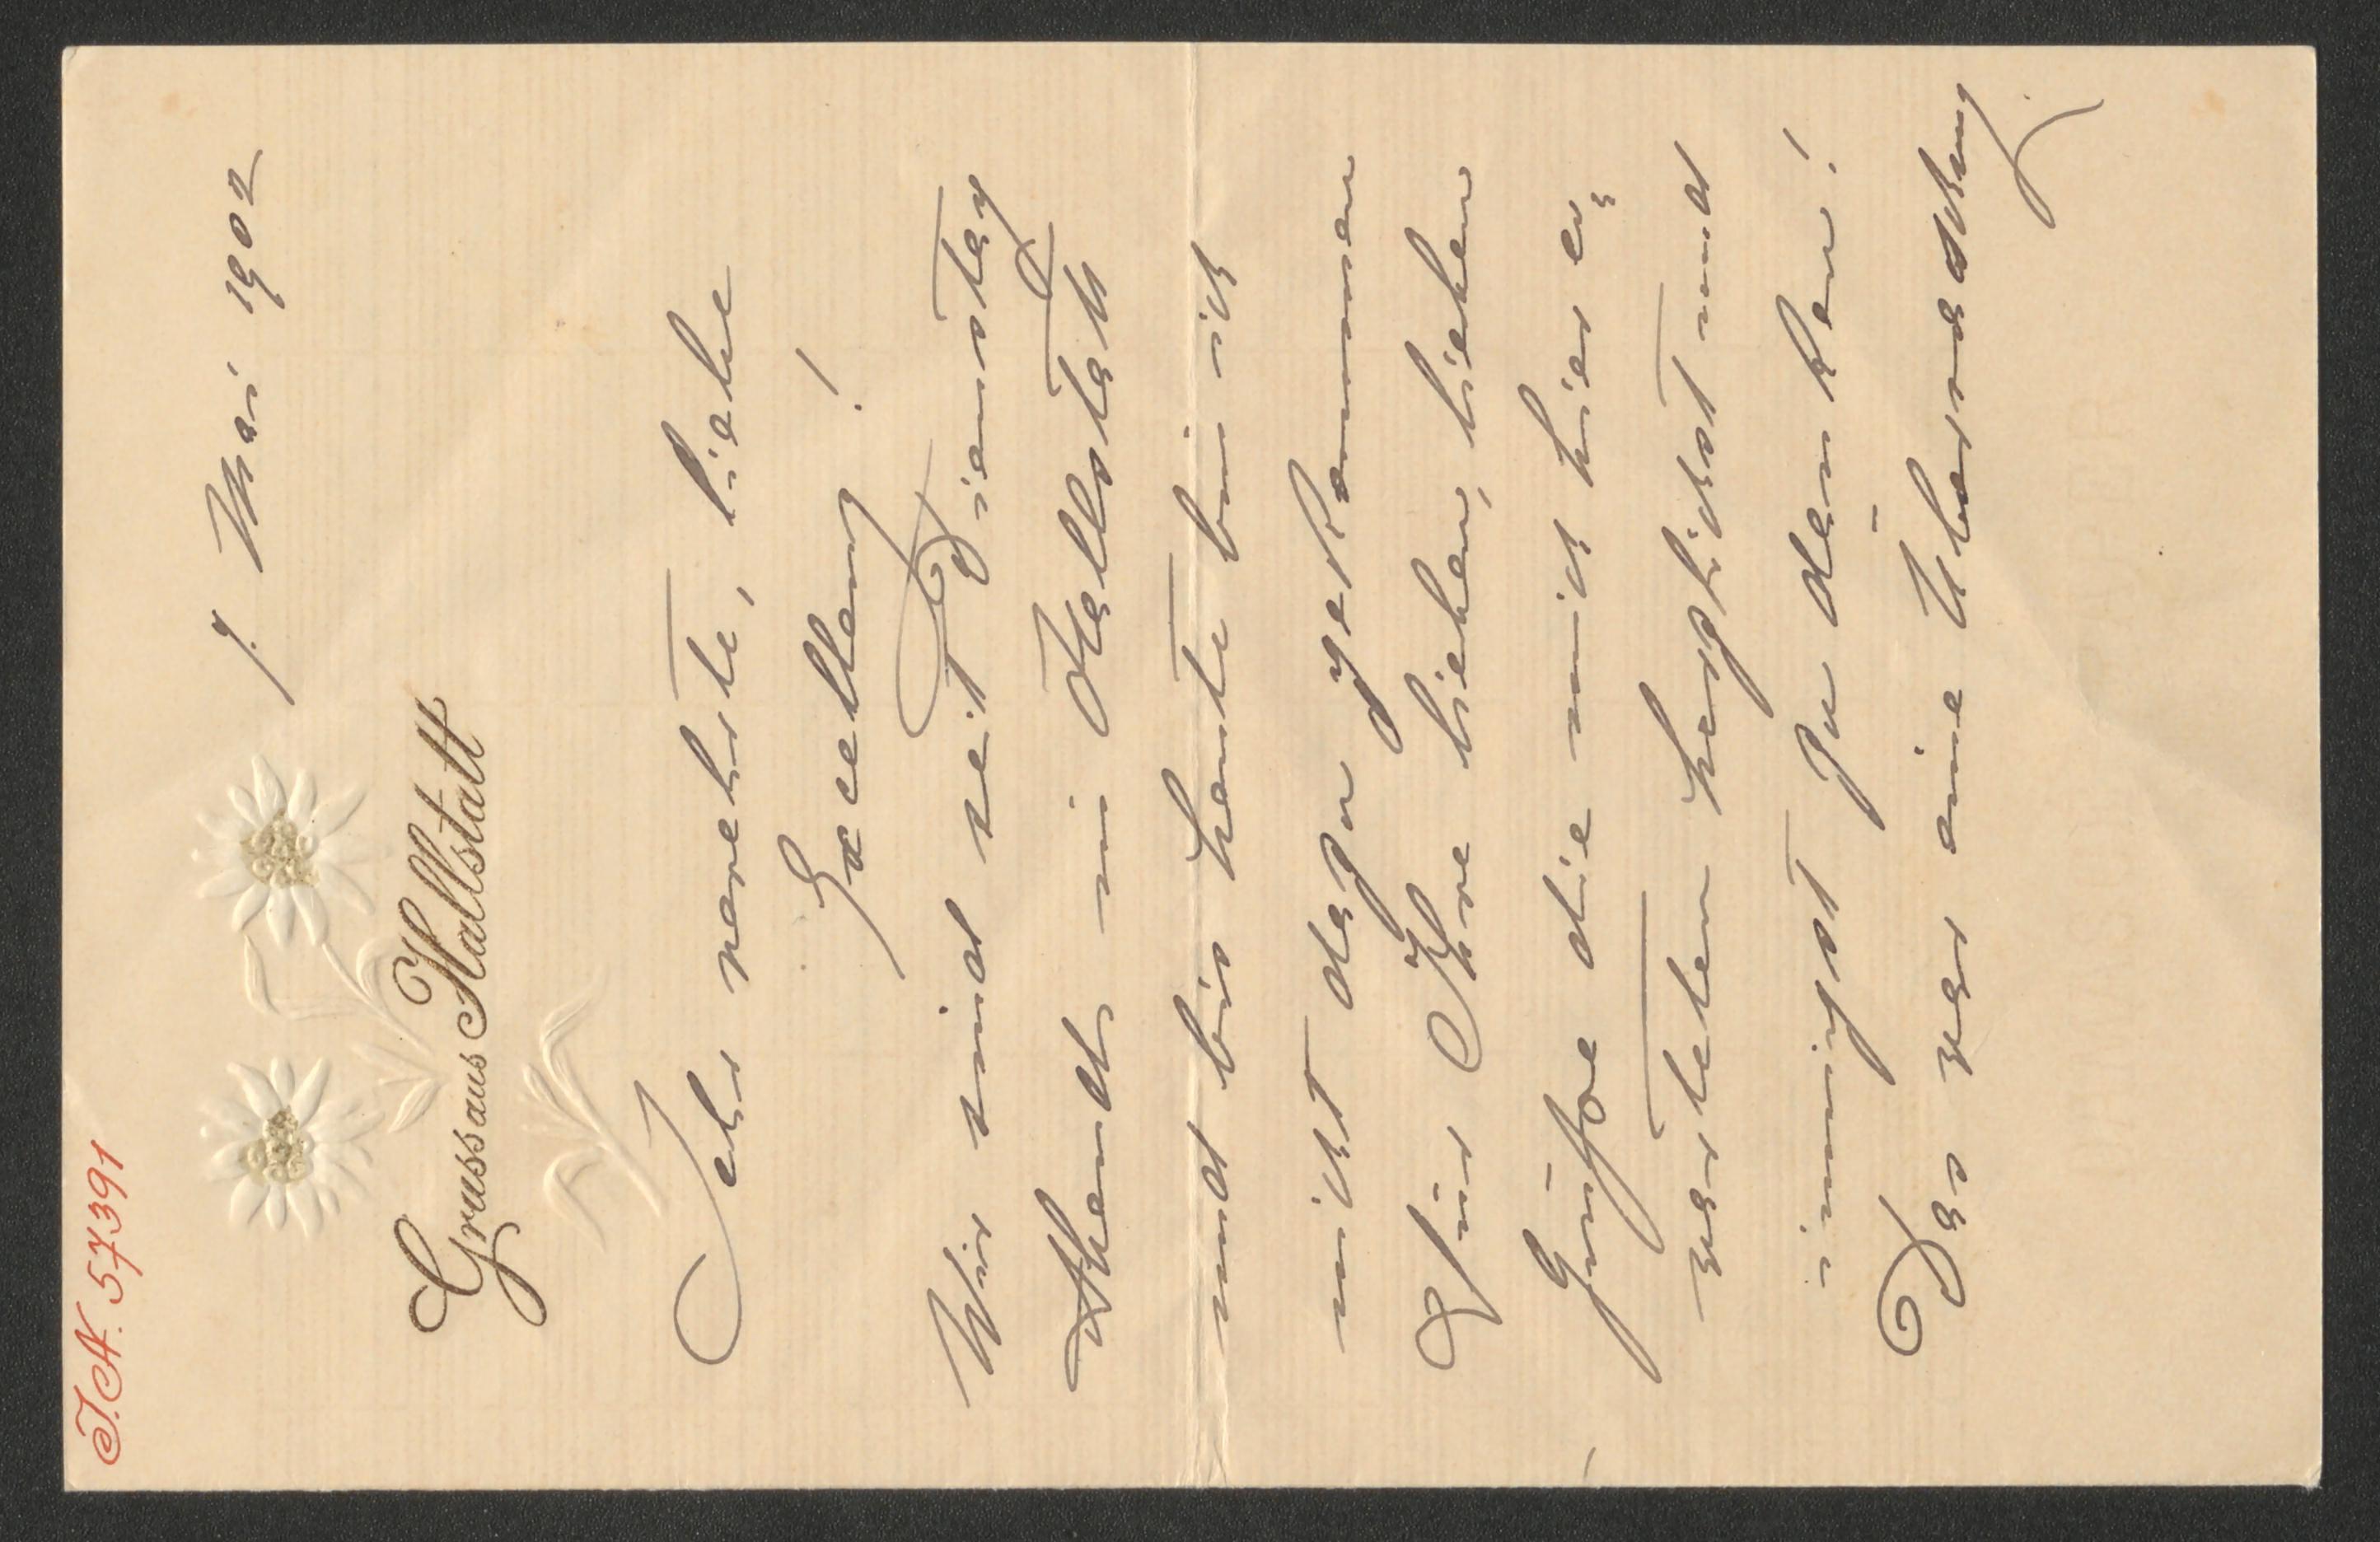 I.N. 57391
Gruss aus Hallstatt
1. Mai 1902
Sehr verehrte, liebe
Excellenz!
Wir sind seit Dienstag
Abends in Hallstatt
und bis heute bin ich
nicht dazu gekommen
für Ihre lieben, lieben
Grüße die mich hier er-
warteten herzlichst und
innigst zu danken!
Das war eine Überraschung